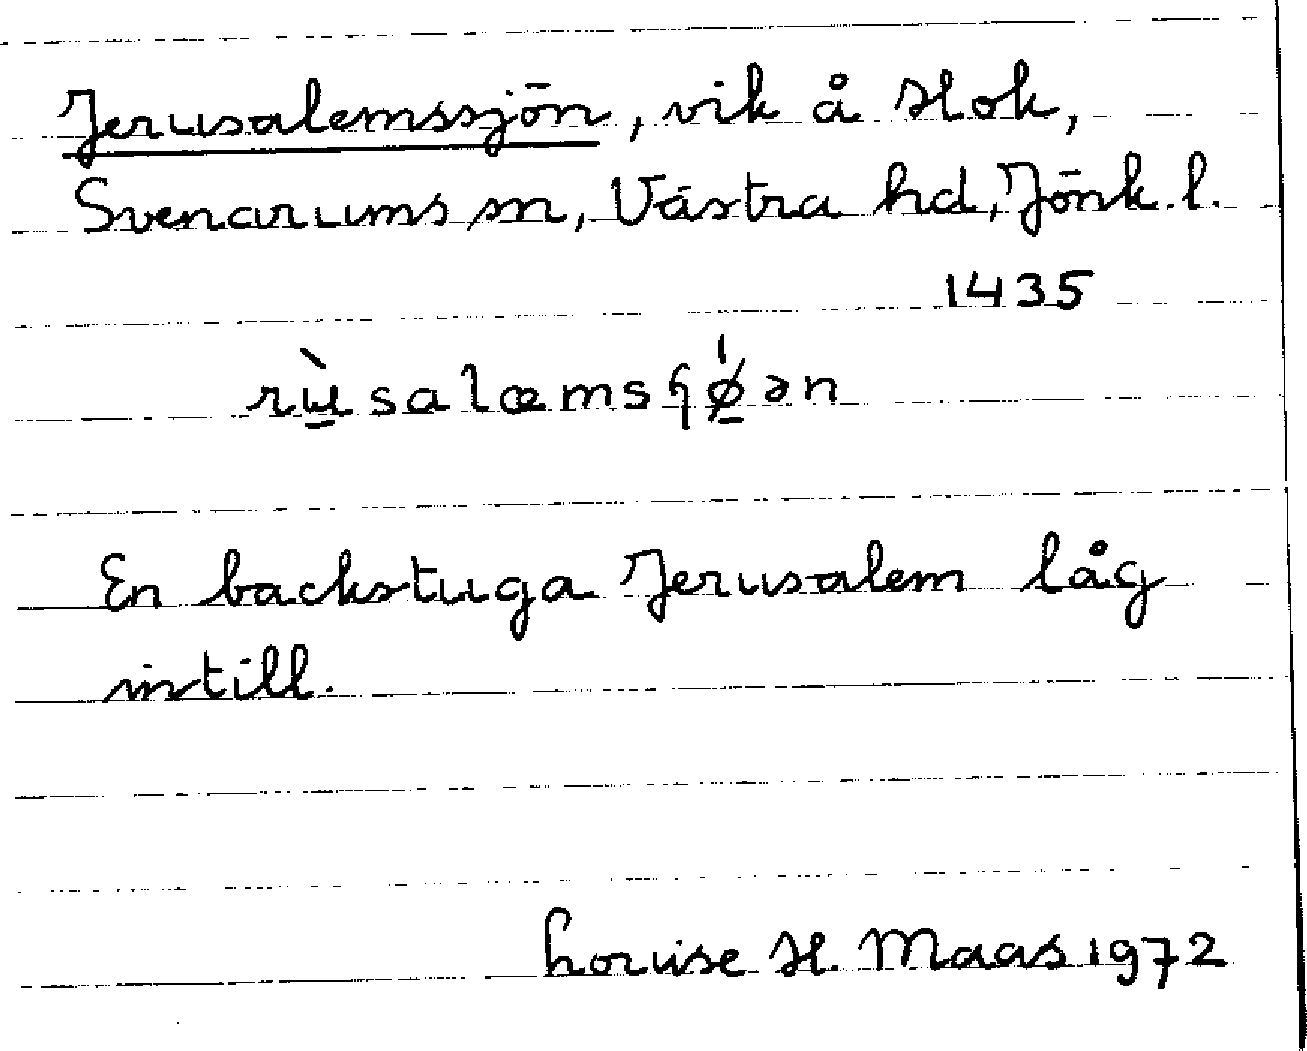 Jerusalemssjön, vik å Hok,
Svenarums sn, Västra hd, Jönk. l.
1435
rɯ̲̀salæmsɧǿ̲ən
En backstuga Jerusalem låg
intill.
Louise H. Maas 1972